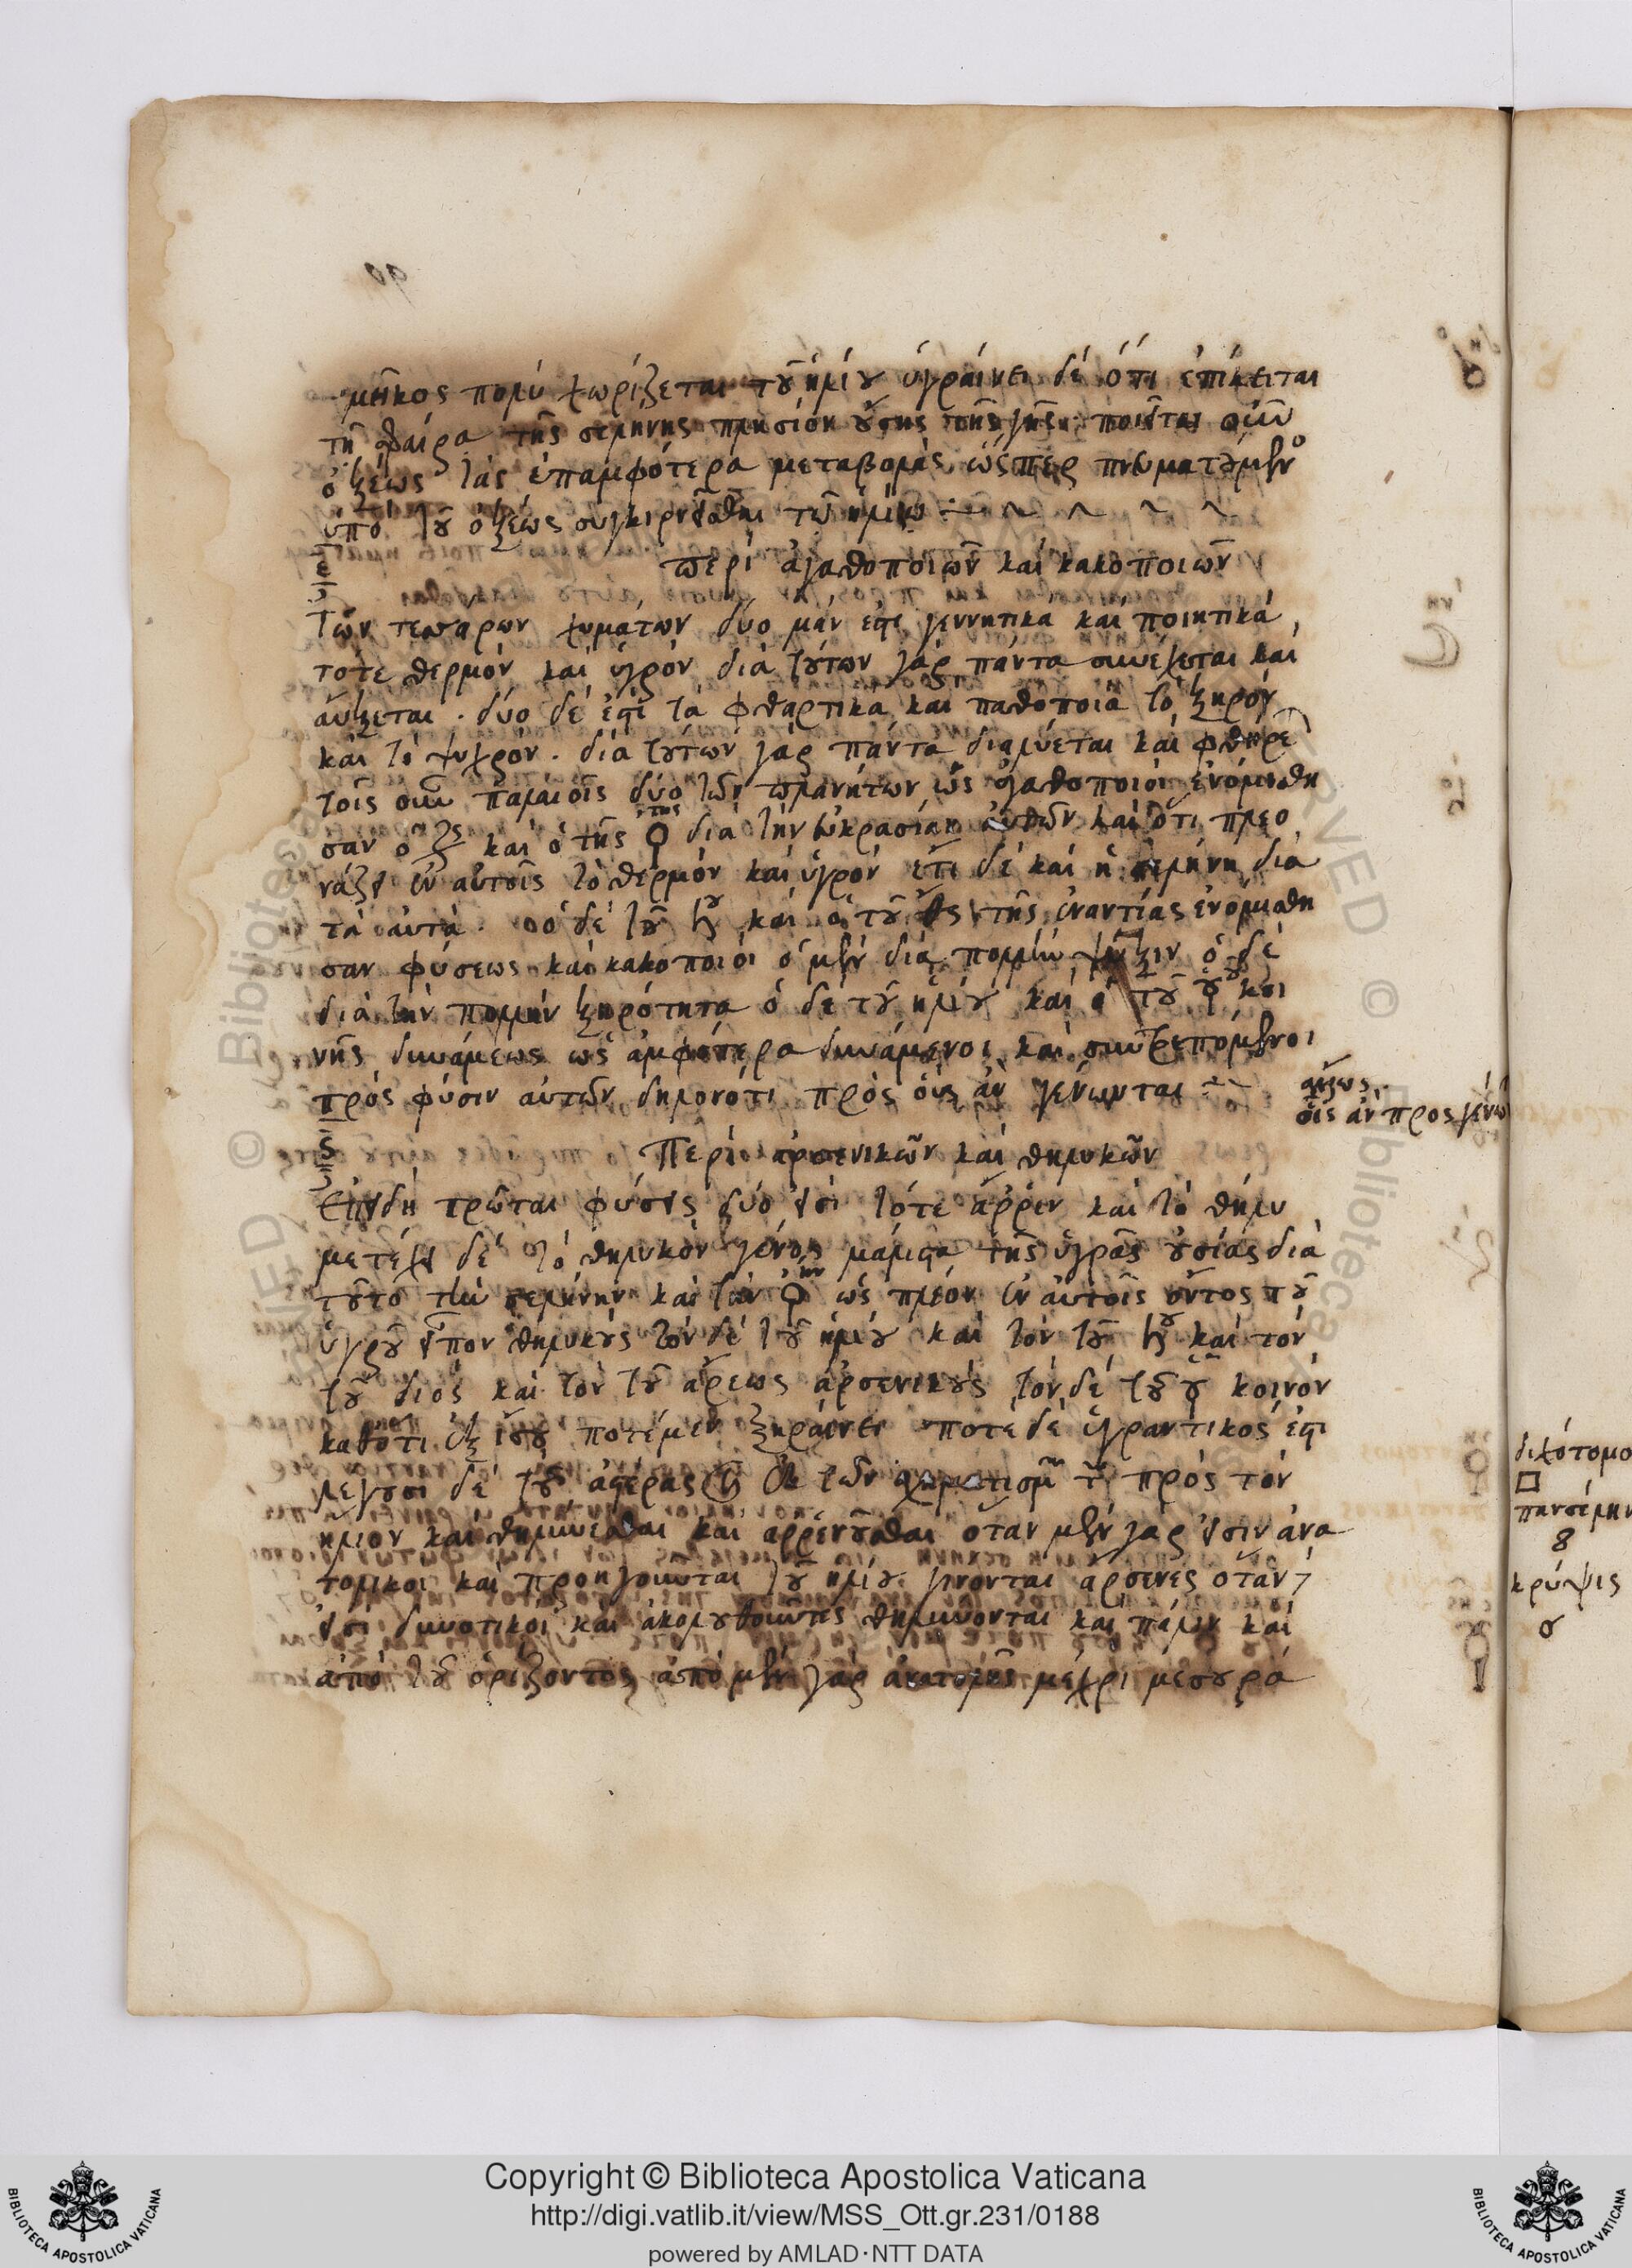 μῆκος πολύ χωρίζεται τοῦ ἡλίου ὑγραίνει δέ ὅτι ἐπίκειται
τῇ σφαίρα τῆς σελήνης πλησίον οὔσης τῆς γῆς· ποιεῖται οὖν
ὀξέως τὰς ἐπαμφότερα μεταβολὰς ὥσπερ πνευματούμενος
ὑπό τοῦ ὀξέως συγκιρνᾶσθαι τῷ ἡλίῳ
ε
περί ἀγαθοποιῶν καί κακοποιῶν
Τῶν τεσσάρων χυμάτων δύο μέν ἐστι γεννητικά καί ποιητικά,
τότε θερμόν καί ὑγρόν διά τούτων γάρ πάντα συνέχεται καί
αὔξεται · δύο δέ ἐστί τά φθαρτικά καί παθοποιά τό ξηρόν
καί τό ψυχρόν · διά τούτων γάρ πάντα διαλύεται καί φθείρεται
τοῖς οὖν παλαιοῖς δύο τῶν πλανήτων ὡς ἀγαθοποιοί ἐνομίσθη
σαν ὁ ♃ καί ὁ τῆς ♀ διά τήν εὐκρασίαν αὐτῶν καί ὅτι πλεο
νάζει ἐν αὐτοῖς τό θερμόν καί ὑγρόν ἔτι δέ καί ἡ σελήνη διά
τά αὐτά · ὁ δέ τοῦ ♄ου καί ὁ τοῦ ♂ τῆς ἐναντίας ἐνομίσθη
σαν φύσεως καί κακοποιοί ὁ μέν διά πολλήν ψῦξιν ὁ δέ
διά τήν πολλήν ξηρότητα ὁ δέ τοῦ ἡλίου καί ὁ τοῦ ☿ κοι
νῆς δυνάμεως ὡς ἀμφότερα δυνάμενοι καί συντρεπόμενοι
πρός φύσιν αὐτῶν δηλονότι πρός οὕς ἄν γένωνται
ἄλλως
οἷς ἄν προσγένω
ς
Περί ἀρσενικῶν καί θηλυκῶν
Ἐπειδή πρῶται φύσεις δύο εἰσί τότε ἄρρεν καί τό θῆλυ
μετέχει δέ τό θηλυκόν γένος μάλιστα τῆς ὑγρᾶς οὐσίας διά
τοῦτο τήν σελήνην καί τήν ♀ην ὡς πλέον ἐν αὐτοῖς ὄντος τοῦ
ὑγροῦ εἶπον θηλυκούς τόν δέ τοῦ ἡλίου καί τόν τοῦ ♄ου καί τόν
τοῦ διός καί τόν τοῦ ἄρεως ἀρσενικούς τόν δέ τοῦ ☿ κοινόν
καθότι ἐξ ἴσου ποτέ μέν ξηραίνει ποτέ δέ ὑγραντικός ἐστι
λέγουσι δέ τούς ἀστέρας ἐκ τῶν σχηματισμῶν τῶν πρός τόν
ἥλιον καί θηλύνεσθαι καί ἀρρενοῦσθαι ὅταν μέν γάρ ὦσιν ἀνα
τολικοί καί προηγοῦνται τοῦ ἡλίου γίνονται ἄρσενες ὅταν
εἰσί δυνοτικοί καί ἀκολουθοῦντες θηλύνονται καί πάλιν καί
ἀπό τοῦ ὁρίζοντος ἀπό μέν γάρ ἀνατολῆς μέχρι μεσουρα
διχότομο
□
πανσέλην
8
κρύψις
σ
Copyright © Biblioteca Apostolica Vaticana
http://digi.vatlib.it/view/MSS_Ott.gr.231/0188
powered by AMLAD·NTT DATA
BIBLIOTECA APOSTOLICA VATICANA
BIBLIOTECA APOSTOLICA VATICANA